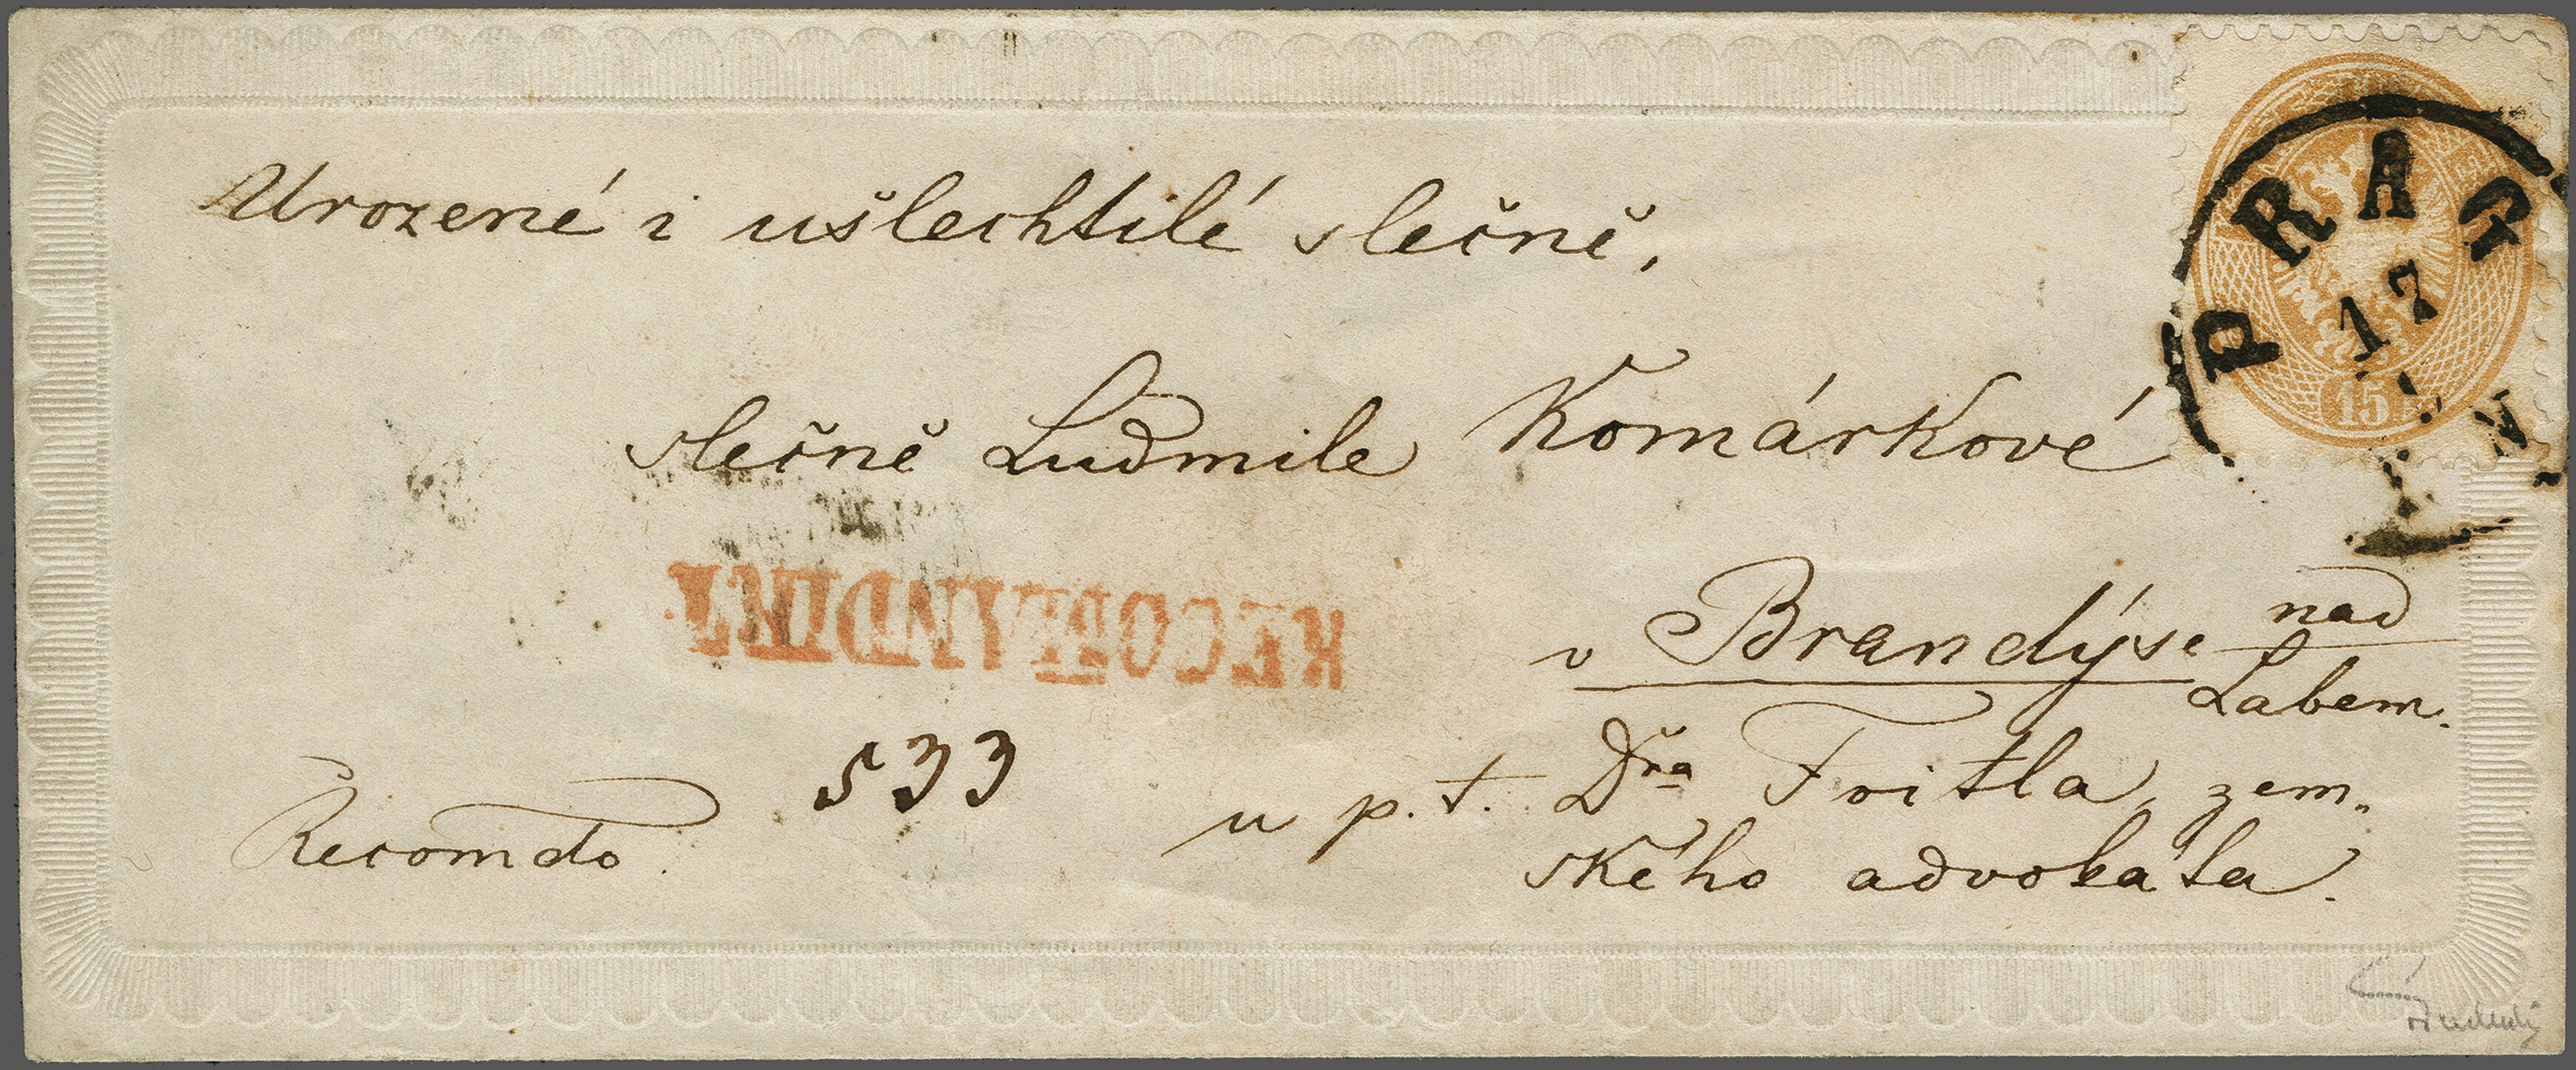 Urozené i ušlechtilé slečně,
slečně Ludmile Komárkové
v Brandýse nad
Labem.
u p. t. Dra Fritla, zem„
ského advokáta.
Recomdo.
533
RECOMANDIRT
PRAG
17
15